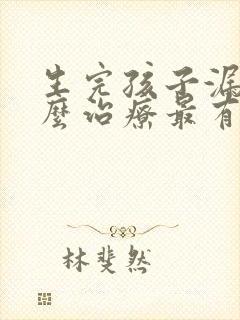 生完孩子漏
麼治療最有
林斐然